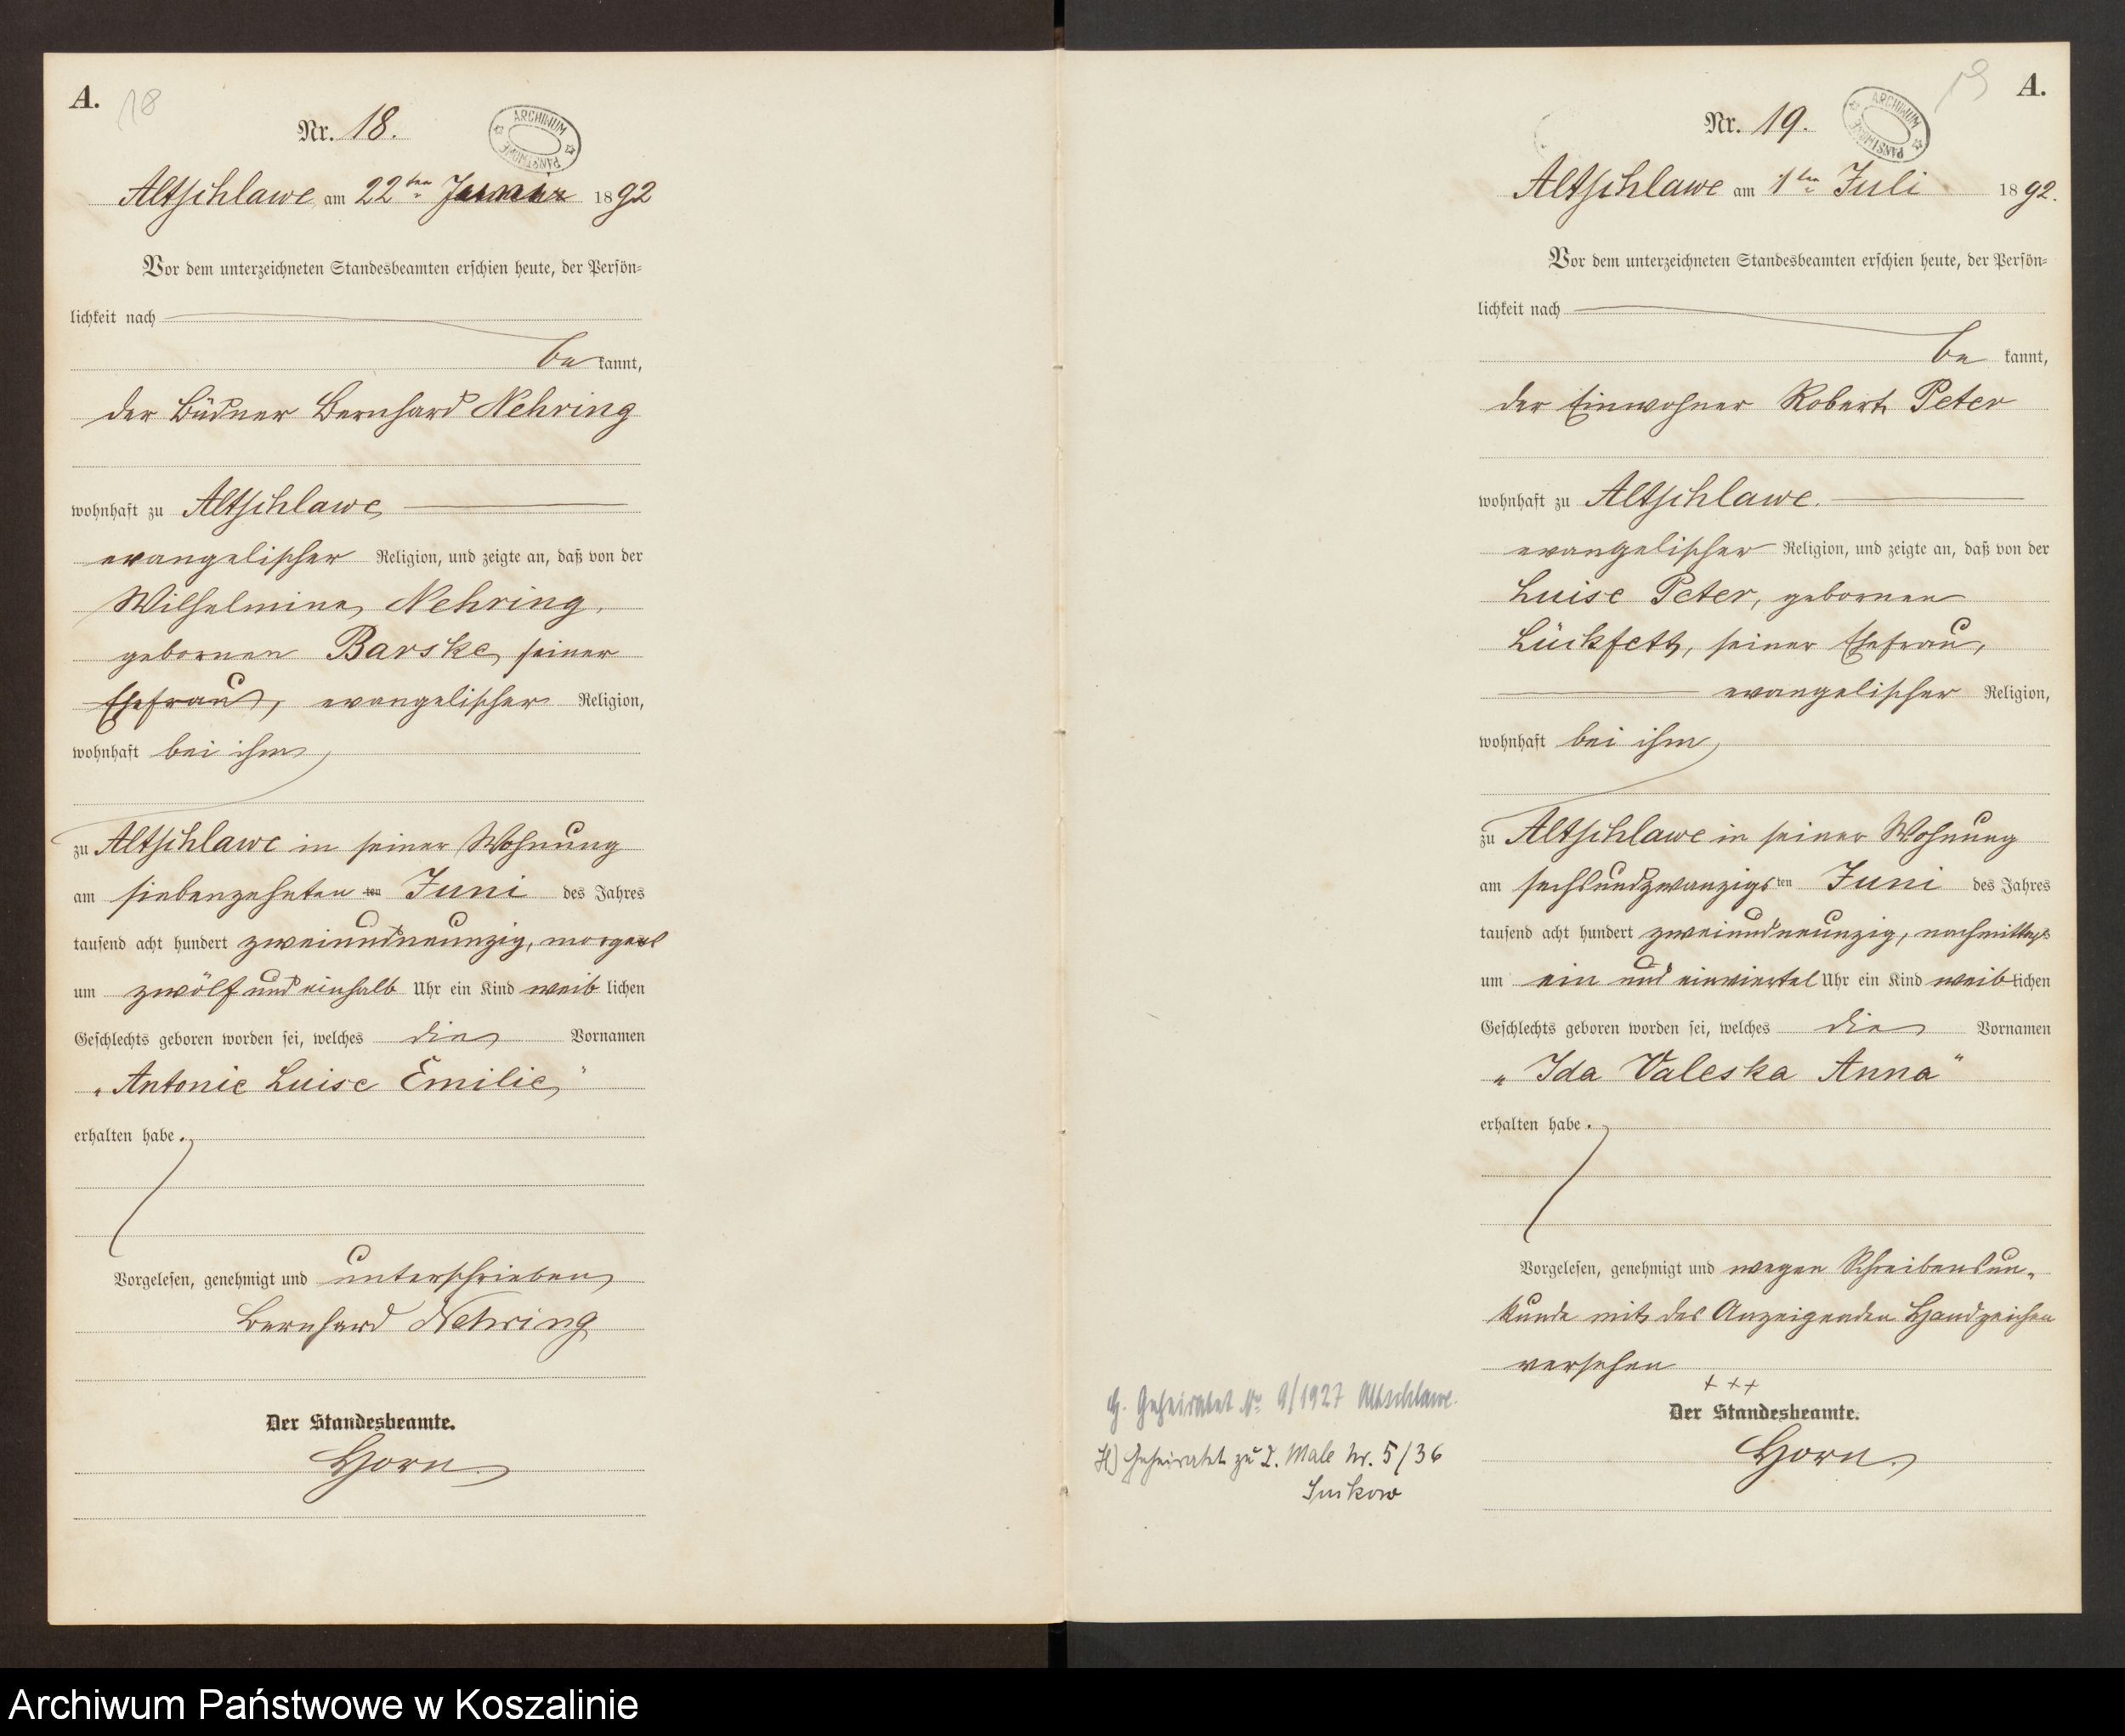 A.
18
Nr. 18.
ARCHIWUM PAŃSTWOWE
Altschlawe am 22ten 1892
Vor dem unterzeichneten Standesbeamten erschien heute, der Persön=
lichkeit nach
be kannt,
der Büdner Bernhard Nehring
wohnhaft zu Altschlawe
evangelischer Religion, und zeigte an, daß von der
Wilhelmine Nehring,
gebornen Barske, seiner
Ehefrau, evangelischer Religion,
wohnhaft bei ihm
zu Altschlawe in seiner Wohnung
am siebenzehnten ten Juni des Jahres
tausend acht hundert zweiundneunzig, morgens
um zwölf und einhalb Uhr ein Kind weib lichen
Geschlechts geboren worden sei, welches die Vornamen
„Antonie Luise Emilie“
erhalten habe.
Vorgelesen, genehmigt und unterschrieben
Bernhard Nehring
Der Standesbeamte.
Horn.
A.
19
Nr. 19.
ARCHIWUM PAŃSTWOWE
Altschlawe am 1ten Juli 1892.
Vor dem unterzeichneten Standesbeamten erschien heute, der Persön=
lichkeit nach
be kannt,
der Einwohner Robert Peter
wohnhaft zu Altschlawe.
evangelischer Religion, und zeigte an, daß von der
Luise Peter, gebornen
Lückfett, seiner Ehefrau,
evangelischer Religion,
wohnhaft bei ihm
zu Altschlawe in seiner Wohnung
am sechsundzwanzigs ten Juni des Jahres
tausend acht hundert zweiundneunzig, nachmittags
um ein und einviertel Uhr ein Kind weib lichen
Geschlechts geboren worden sei, welches die Vornamen
„Ida Valeska Anna“
erhalten habe.
Vorgelesen, genehmigt und wegen Schreibensun-
kunde mit des Anzeigenden Handzeichen
versehen
+++
Der Standesbeamte.
Horn.
G. Geheiratet No 9/1927 Altschlawe.
H) Geheiratet zu 2. Male Nr. 5/36
Archiwum Państwowe w Koszalinie